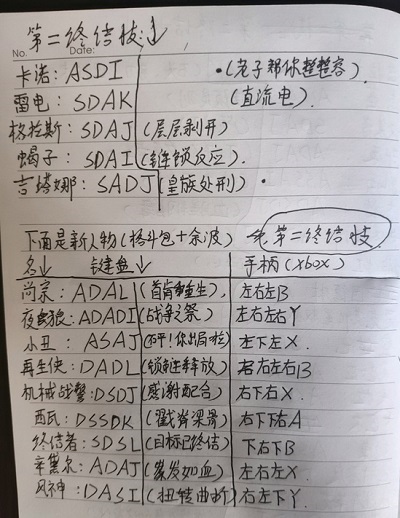 第二终结技↓
No.
Date:
卡诺：ASDI •(老子帮你整整容)
雷电：SDAK (直流电).
格拉斯：SDAJ (层层剥开)
蝎子：SDAI (链锁反应).
吉塔娜：SADJ (皇族处刑) •
下面是新人物(格斗包+余波) 第二终结技
名↓ 键盘↓ 手柄(xbox)
尚宗：ADAL (首重生), 左右左B
夜狼：ADADI (战争之祭) 左右左右Y
小丑：ASAJ (砰!你出局啦) 左下左X
再生侠：DADL (锁链释放) 右左右B
机械战警：DSDJ (感谢配合) 右下右X
西瓦：DSSDK (戳脊梁骨) 右下下右A
终结者：SDSL (目标已终结) 下右下B
辛黛尔：ADAJ (发如血) 左右左X
风神：DASI (扭转曲折) 右左下Y.